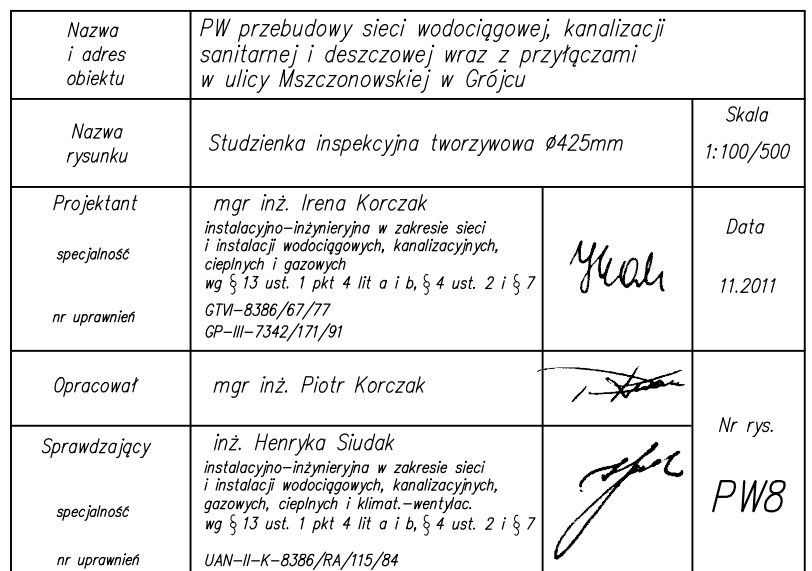 Nazwa
i adres
obiektu
PW przebudowy sieci wodociągowej, kanalizacji
sanitarnej i deszczowej wraz z przyłączami
w ulicy Mszczonowskiej w Grójcu
Nazwa
rysunku
Studzienka inspekcyjna tworzywowa ø425mm
Skala
1:100/500
Projektant
specjalność
nr uprawnień
mgr inż. Irena Korczak
instalacyjno-inżynieryjna w zakresie sieci
i instalacji wodociągowych, kanalizacyjnych,
cieplnych i gazowych
wg § 13 ust. 1 pkt 4 lit a i b, § 4 ust. 2 i § 7
GTVI-8386/67/77
GP-III-7342/171/91
Data
11.2011
Opracował
mgr inż. Piotr Korczak
Sprawdzający
specjalność
nr uprawnień
inż. Henryka Siudak
instalacyjno-inżynieryjna w zakresie sieci
i instalacji wodociągowych, kanalizacyjnych,
gazowych, cieplnych i klimat.-wentylac.
wg § 13 ust. 1 pkt 4 lit a i b, § 4 ust. 2 i § 7
UAN-II-K-8386/RA/115/84
Nr rys.
PW8